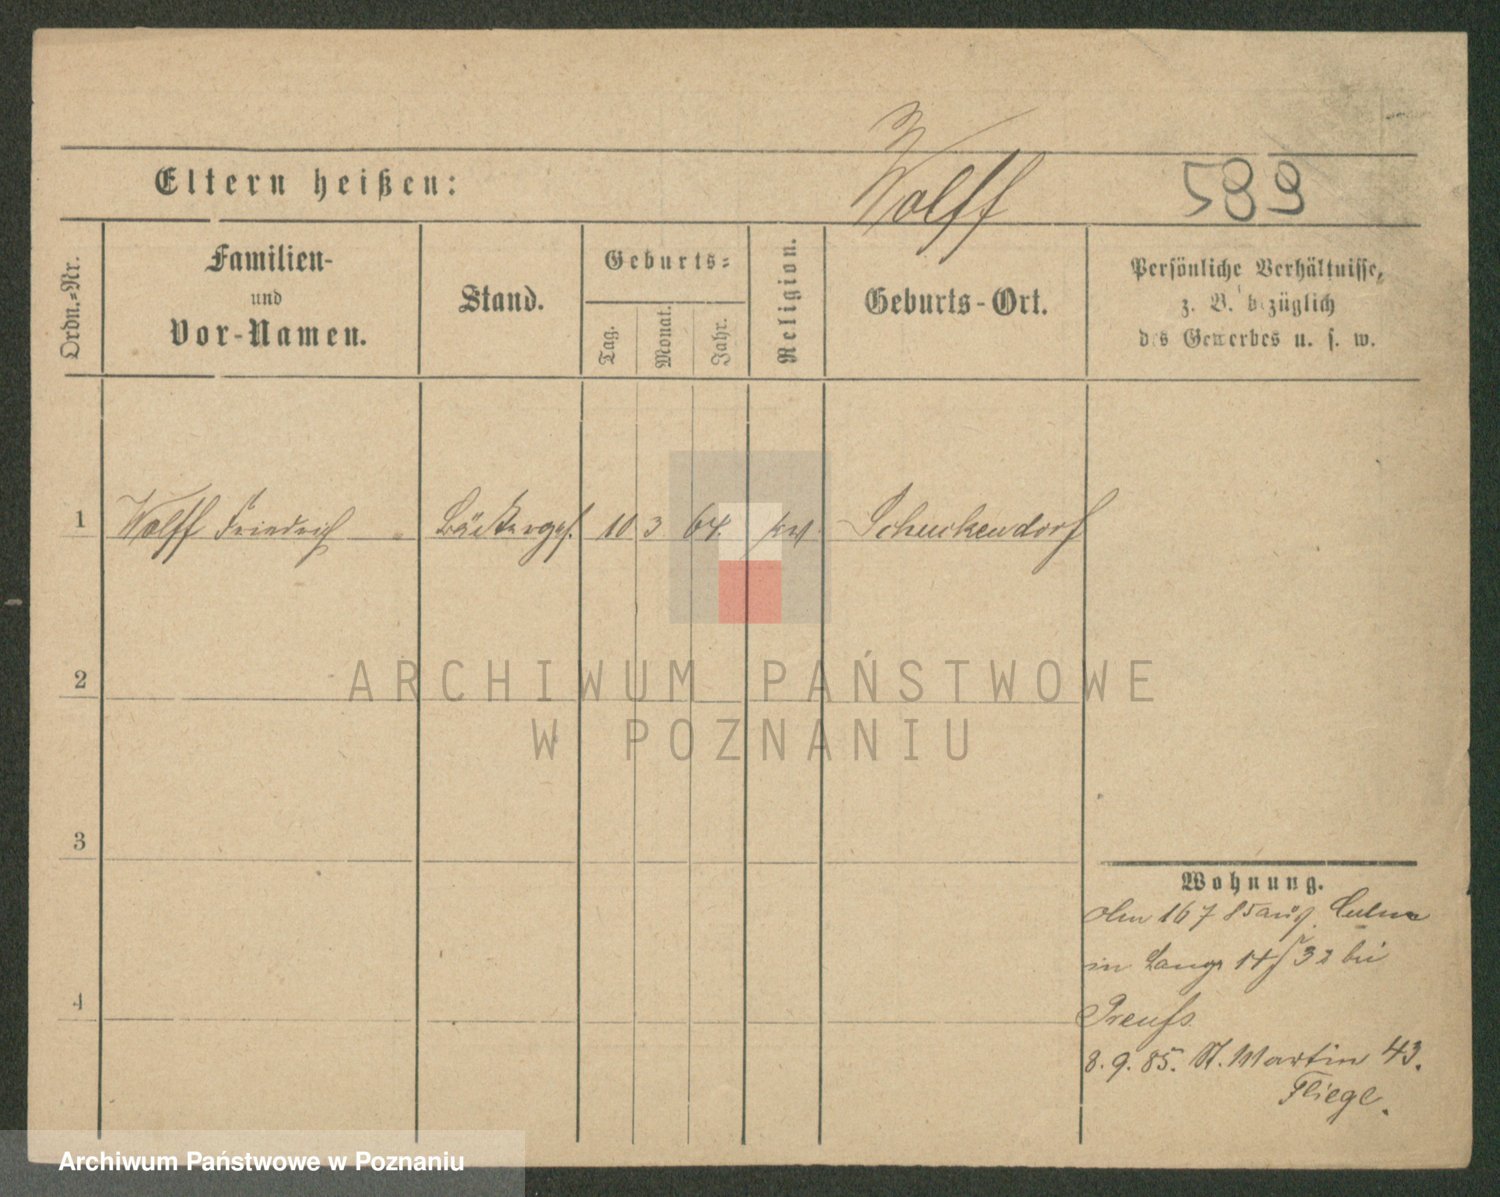 Wolff
589
Eltern heißen:
Ordn.-Nr.
Familien-
und
Vor-Namen.
Stand.
Geburts-
Tag.
Monat.
Jahr.
Religion.
Geburts-Ort.
Persönliche Verhältnisse,
z. B. bezüglich
des Gewerbes u. s. w.
1 Wolff Friedrich Bäckerges. 10 3 64. ev. Schenkendorf
ARCHIWUM PAŃSTWOWE
W POZNANIU
2
3
4
Wohnung.
16 7 85 aus Culm
in Lange Str 32 bei
Preuss
8. 9. 85. St. Martin 43.
Fliege.
Archiwum Państwowe w Poznaniu